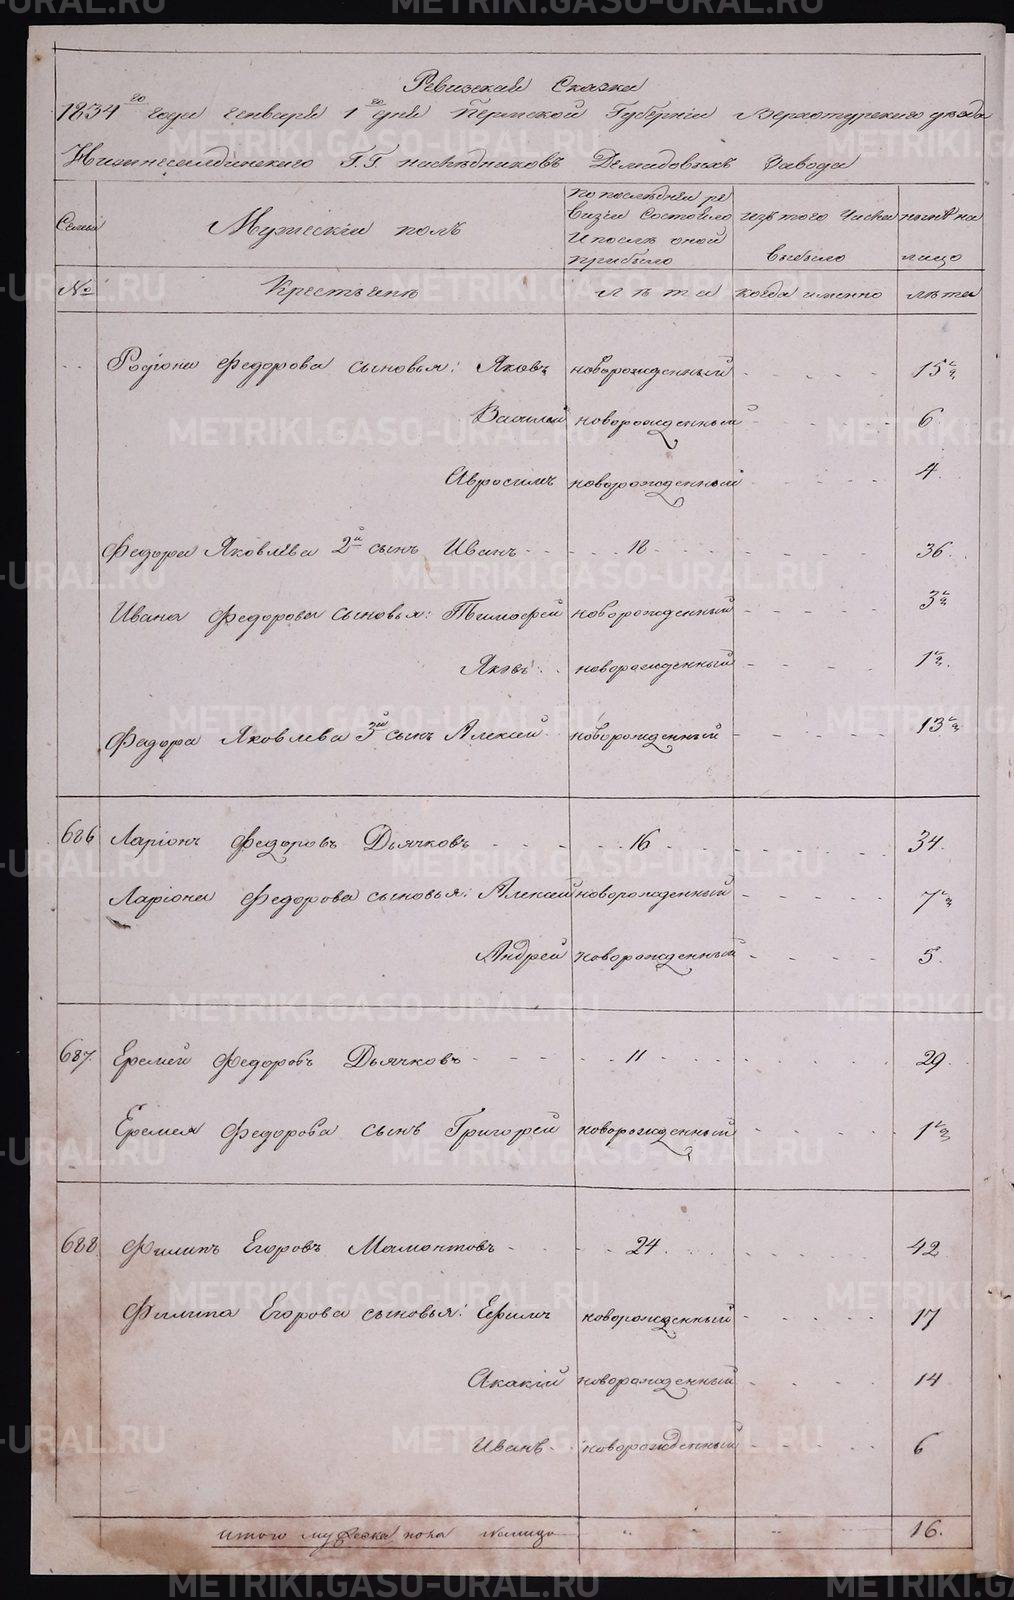 Ревизская Сказка
1834го года Генваря 1го дня Пермской Губернiи Верхотурского уезда
Нижнесалдинского Г.Г. наследниковъ Демидовыхъ Завода
Семьи
Мужескiй полъ
по последней ре
визiи Состояло
И после оной
прибыло
изъ того Числа
выбыло
ныне на
лицо
№
Крестьяне
лета
когда именно
лета
Родiона Федорова сыновья: Яковъ новорожденный 15 ½
Василий новорожденный 6
Авросимъ новорожденный 4
Федора Яковлева 2й сынъ Иванъ 18 36
Ивана Федорова сыновья: Тимофей новорожденный 3 ½
Яковъ новорожденный 1 ½
Федора Яковлева 3й сынъ Алексей новорожденный 13 ½
686 Ларiонъ Федоровъ Дьячковъ 16 34
Ларiона Федорова сыновья: Алексей новорожденный 7 ½
Андрей новорожденный 5
687. Еремей Федоровъ Дьячковъ 11 29
Еремея Федорова сынъ Григорей новорожденный 1 ½
688 Филипъ Егоровъ Мамонтовъ 24 42
Филипа Егорова сыновья: Ефимъ новорожденный 17
Акакiй новорожденный 14
Иванъ новорожденный 6
итого мужеска пола налицо 16.
METRIKI.GASO-URAL.RU